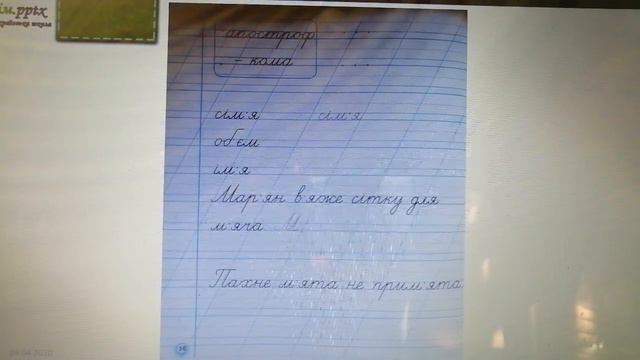 їм.pptx
апостроф
, - кома
сім'я сім'я
об'єм
ім'я
Мар'ян в'яже сітку для
м'яча М
Пахне м'ята не прим'ята